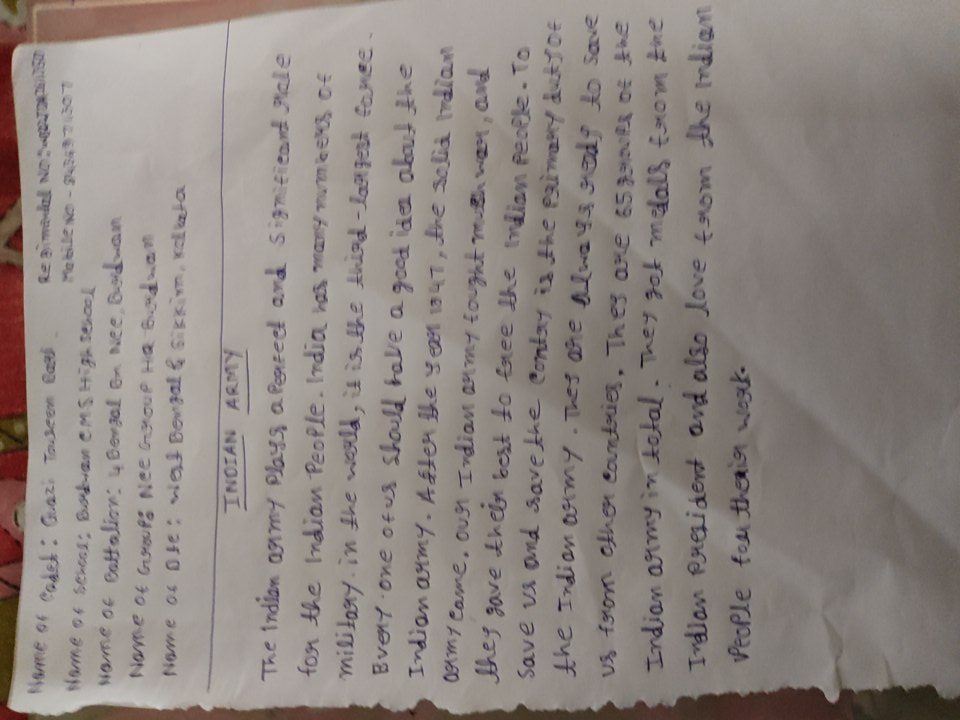 Name of Cadet: Quazi Tasleem Eadi
Regimental NO:
Mobile NO -
Name of School: Burdwan C.M.S High School
Name of Battalion: 4 Bengal Bn Ncc, Burdwan
Name of Groups Ncc Group HQ Burdwan
Name of Dte: West Bengal & Sikkim, Kolkata
INDIAN ARMY
The Indian army Plays a Perfect and Significant role
for the Indian People. India has many numbers of
military. in the world, it is the third-largest force.
Every one of us should have a good idea about the
Indian army. After the year 1947, the solid Indian
army came. our Indian army fought much war, and
they gave their best to free the Indian People. To
Save us and save the Contry is the Primary duty of
the Indian army. They are Always ready to save
us from other Countries. They are 65 groups of the
Indian army in total. They got medals from the
Indian President and also love from the Indian
People for their work.